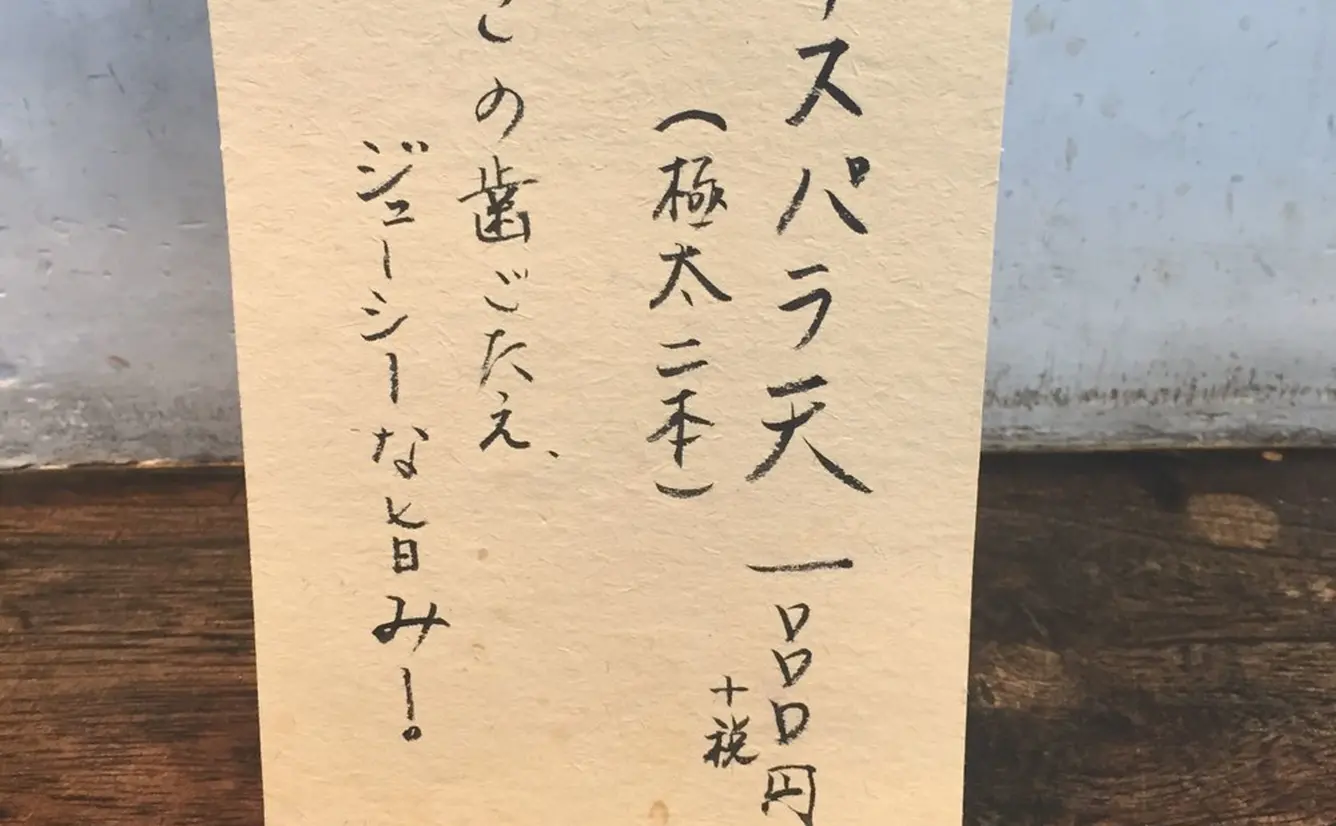 スパラ天 一〇〇〇円
+税
(極太二本)
この歯ごたえ、
ジューシーな旨みー。